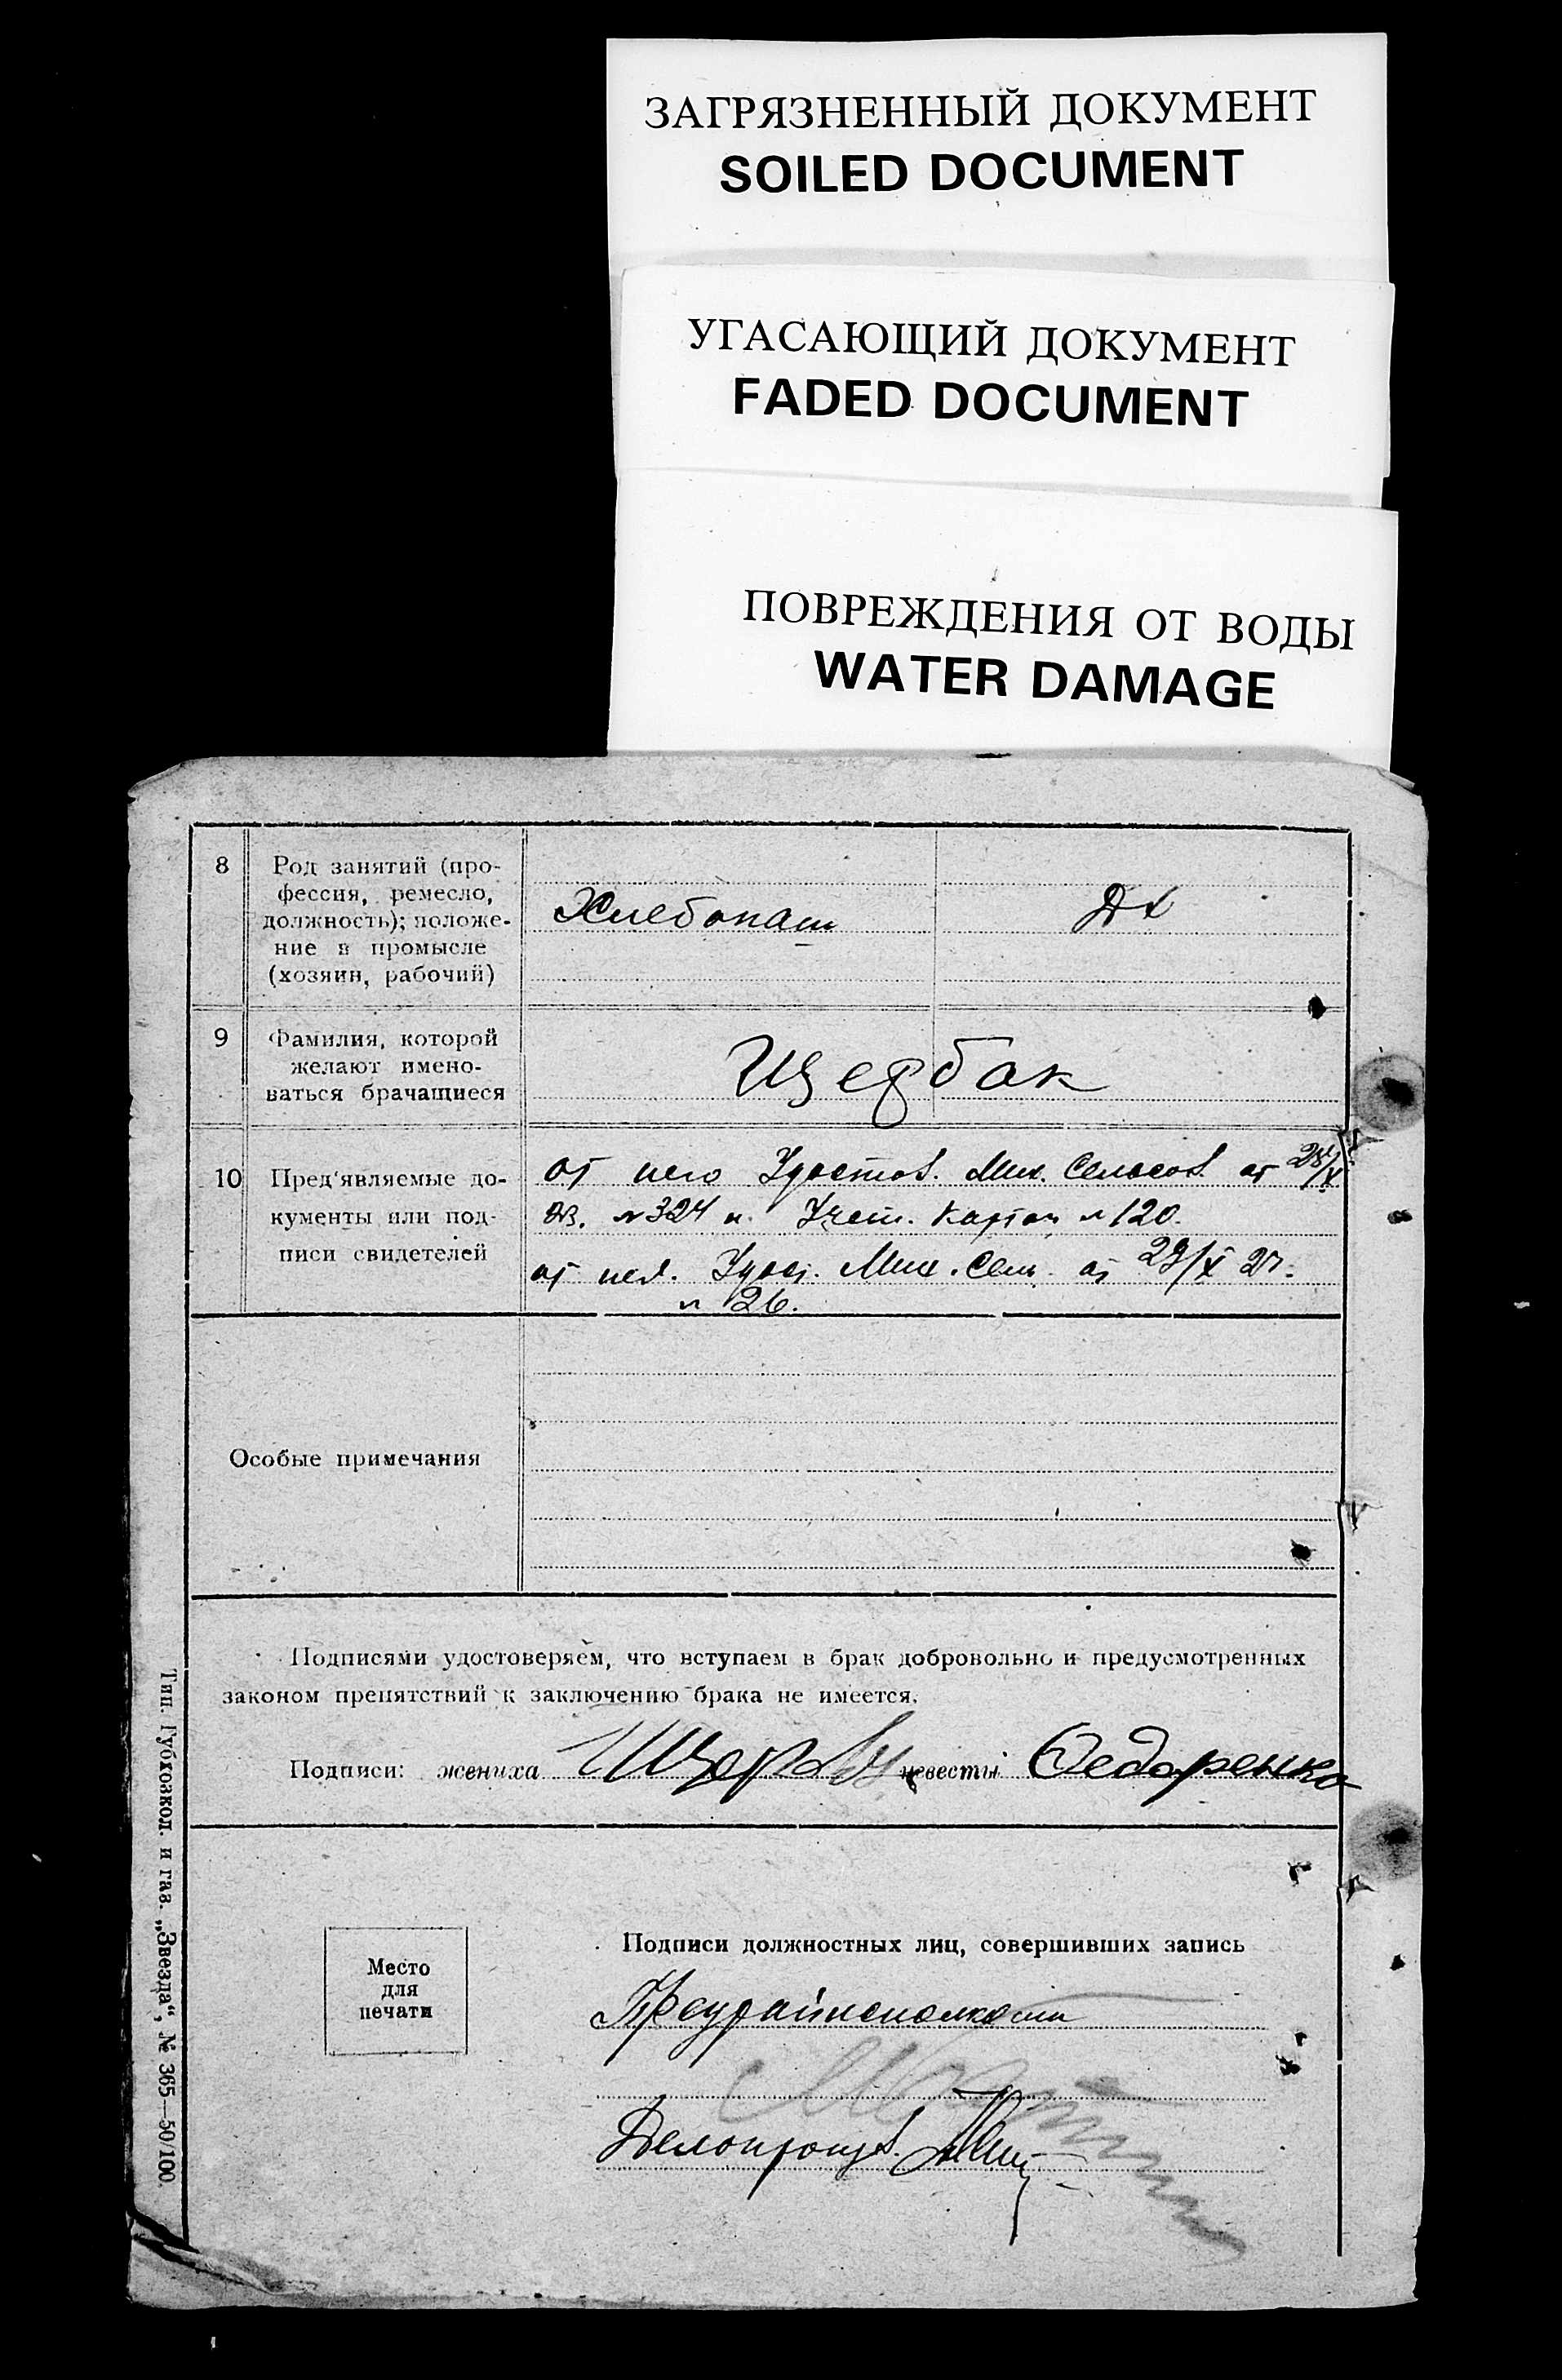 ЗАГРЯЗНЕННЫЙ ДОКУМЕНТ
SOILED DOCUMENT
УГАСАЮЩИЙ ДОКУМЕНТ
FADED DOCUMENT
ПОВРЕЖДЕНИЯ ОТ ВОДЫ
WATER DAMAGE
8
Род занятий (про-
фессия, ремесло,
должность); положе-
ние в промысле
(хозяин, рабочий)
Хлебопаш
Дх
9
Фамилия, которой
желают имено-
ваться брачащиеся
Щербак
10
Пред'являемые до-
кументы или под-
писи свидетелей
от него Удостов. Мих. Сельсов. от 28/X
№ 324 и Учет. Карточ № 120.
от нея. Удос. Мих. Сель. от 29/X 27.
№ 26.
Особые примечания
Подписями удостоверяем, что вступаем в брак добровольно и предусмотренных
законом препятствий к заключению брака не имеется.
Подписи: жениха Щербак невесты Федоренко
Место
для
печати
Подписи должностных лиц, совершивших запись
Делопроизв.
Тип. Губкозкол. и газ. „Звезда“, № 365—50/100.